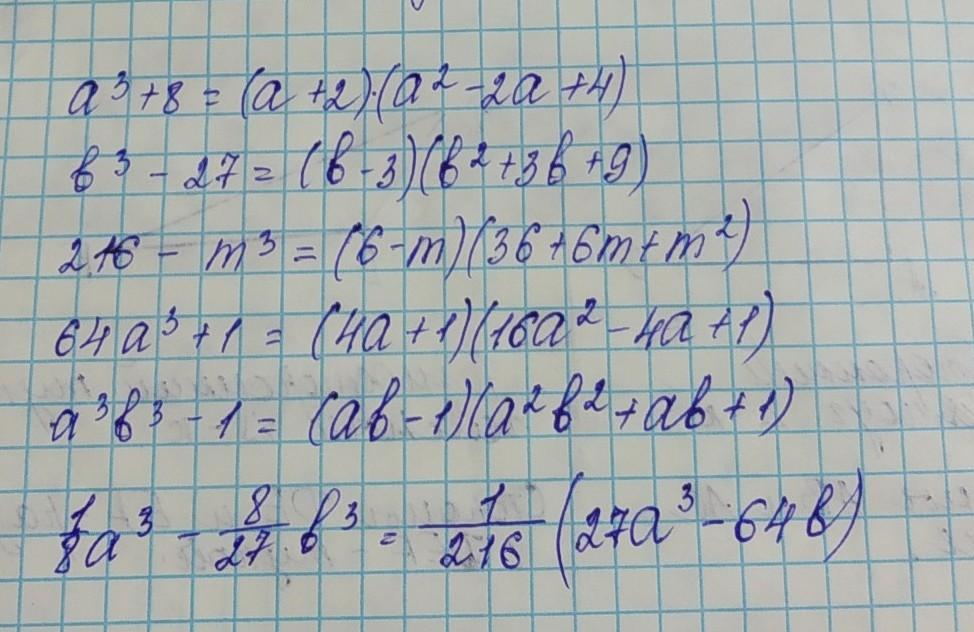 a³+8 = (a+2)·(a²-2a+4)
b³ - 27 = (b-3)(b²+3b+9)
216 - m³ = (6-m)(36+6m+m²)
64a³+1 = (4a+1)(16a²-4a+1)
a³b³ - 1 = (ab-1)(a²b²+ab+1)
1/8 a³ - 8/27 b³ = 1/216 (27a³-64b)